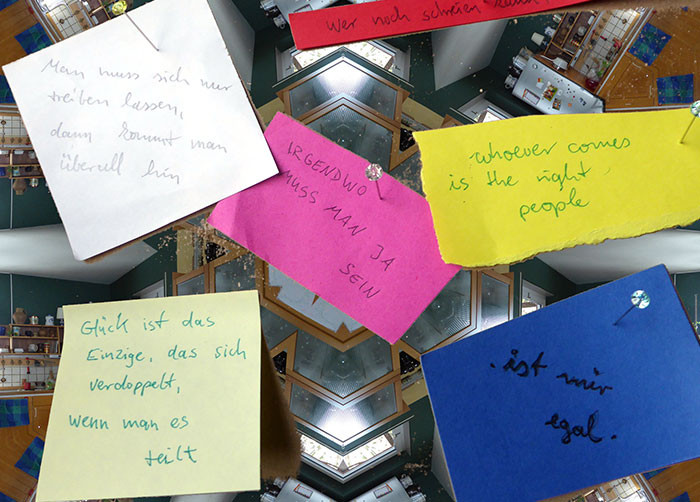 Wer noch schreien kann
Man muss sich nur
treiben lassen,
dann kommt man
überall hin
IRGENDWO
MUSS MAN JA
SEIN
whoever comes
is the right
people
Glück ist das
Einzige, das sich
verdoppelt,
wenn man es
teilt
. ist mir
egal.